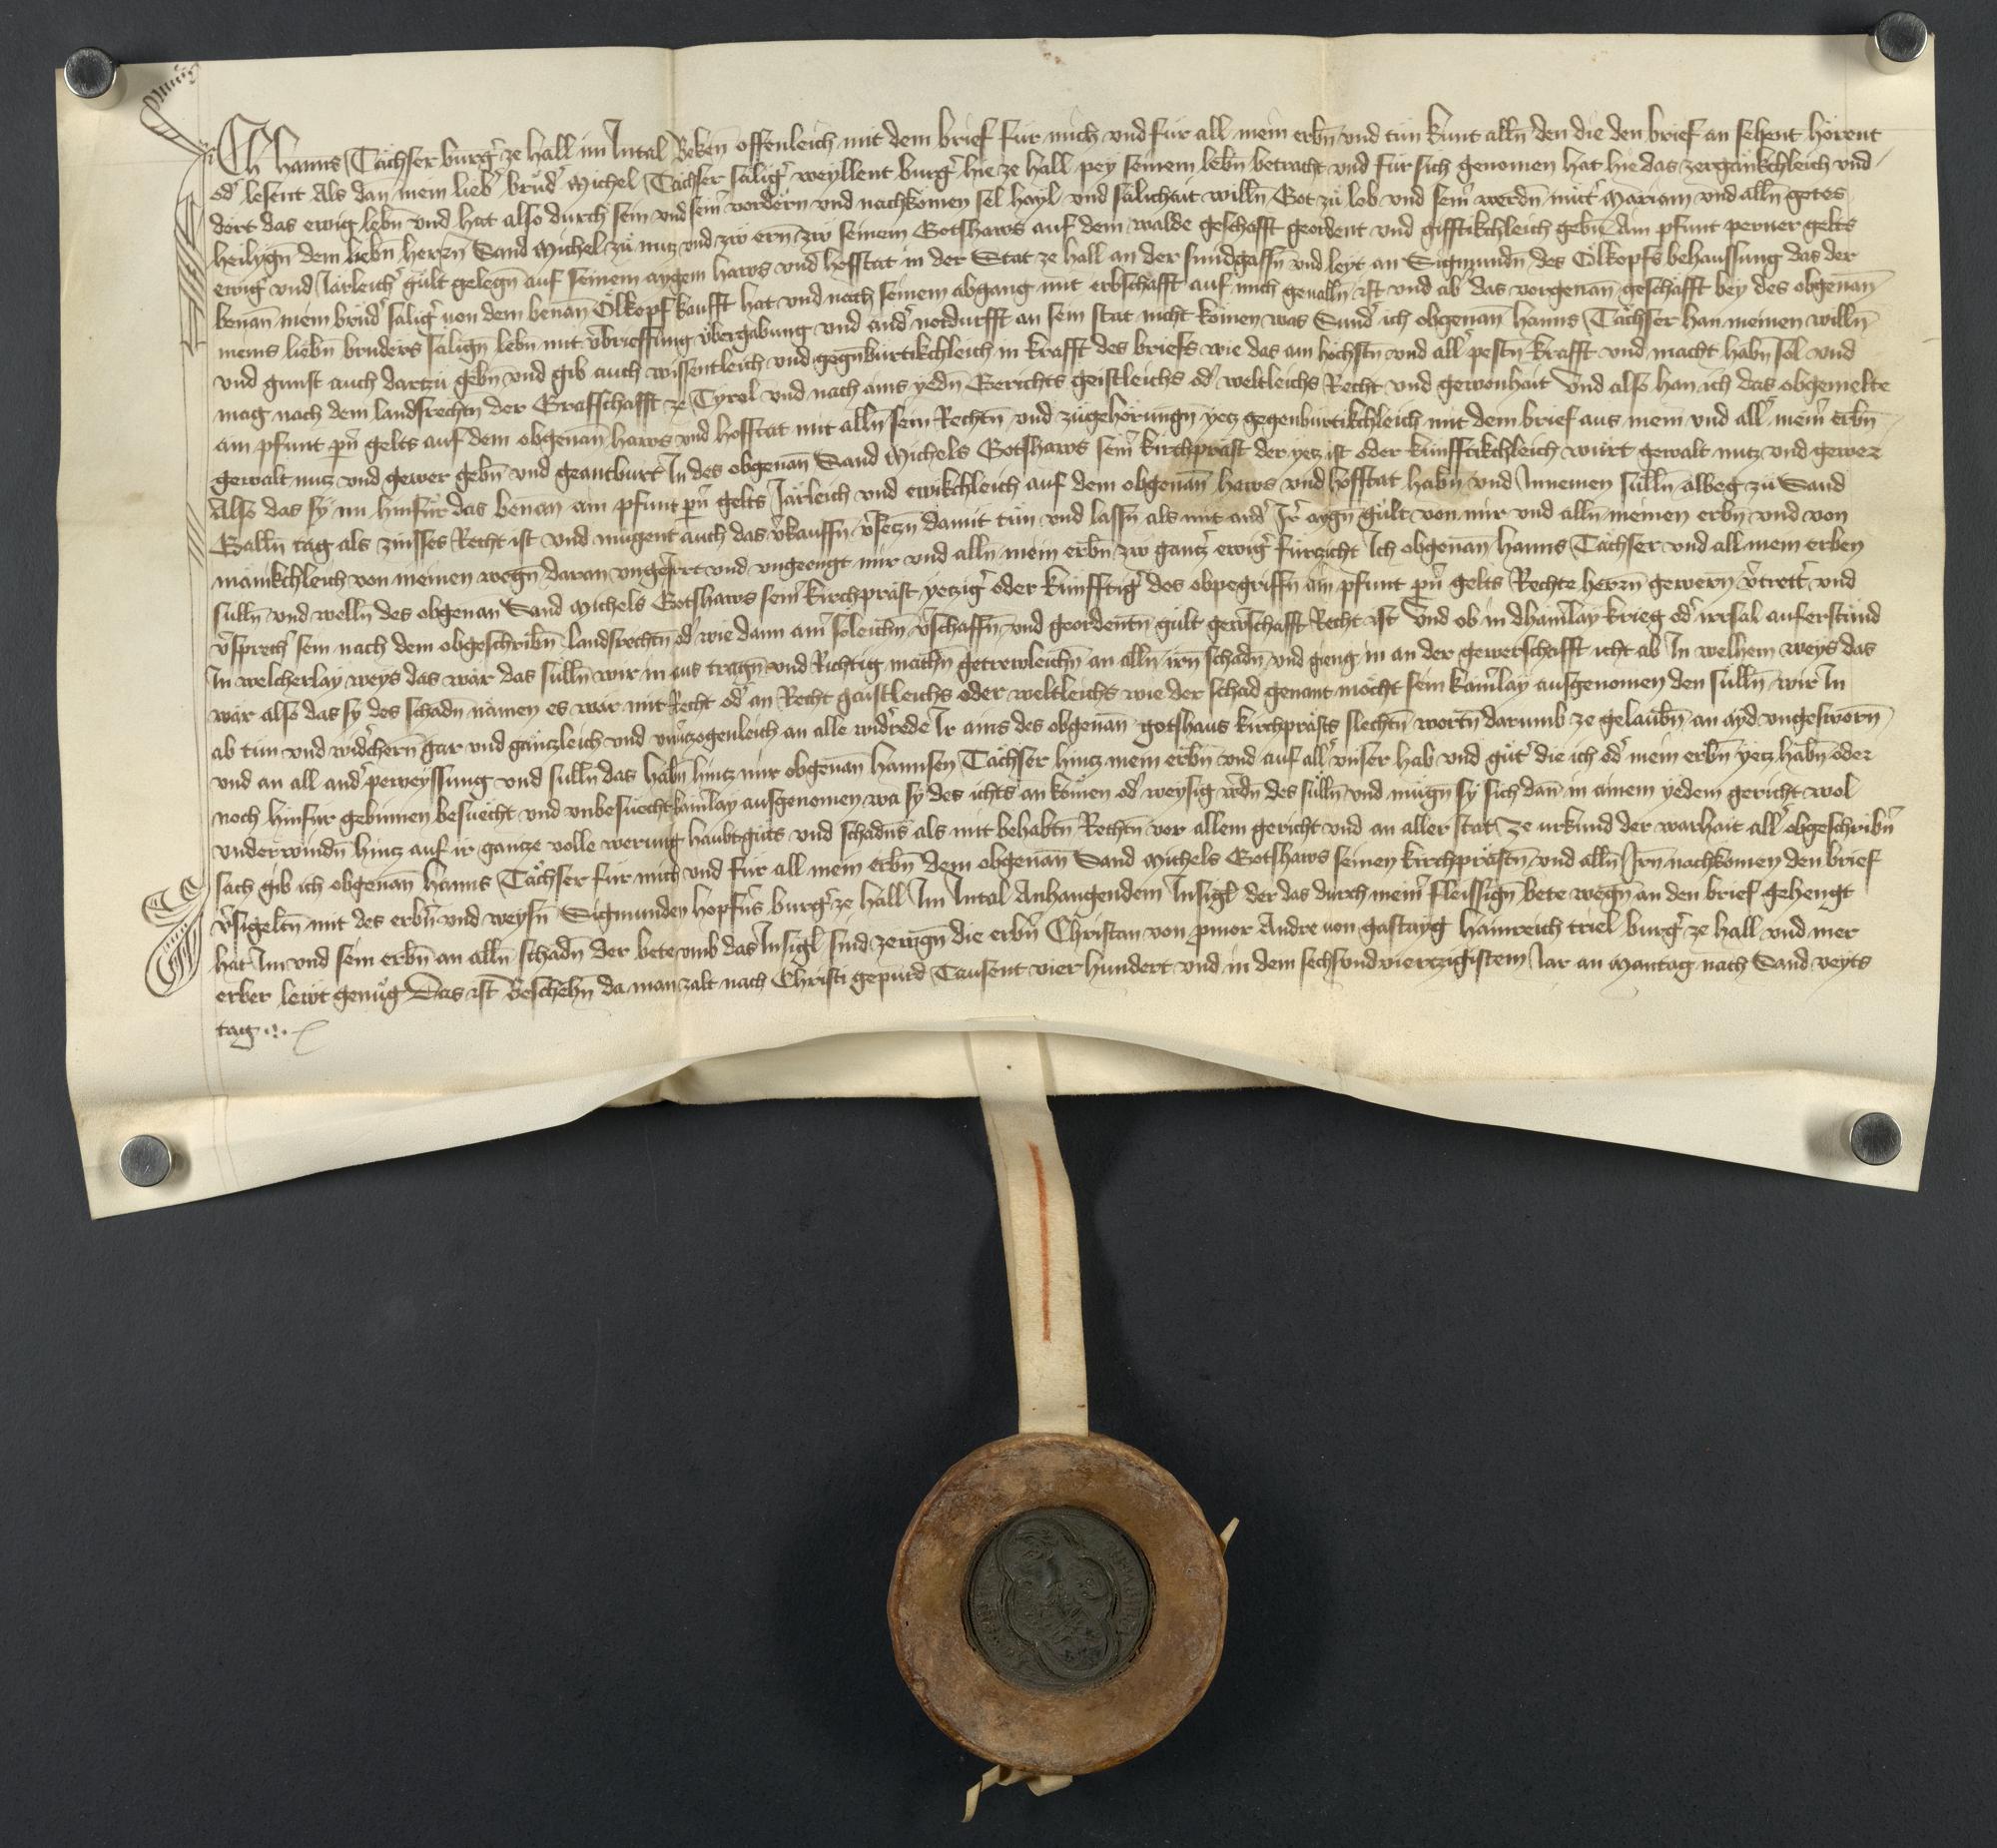 Ich Hanns Tächser burgr ze Hall im Intal Beken offenleich mit dem brief für mich und für all mein erbn und tün kunt alln den die den brief an sehent hörent
odr lesent Als dan mein liebr brüdr Michel Tächser säligr weyllent burgr hie ze Hall pey seinem lebn betracht und für sich genomen hat hie das zergänkchleich und
dort das ewig lebn und hat also durch sein und seinr vordern und nachkomen sel hayl und sälichait willn Got zü lob und seinr werdn mütr Mariam und alln gotes
heilign dem liebn herrn Sand Michel zü nutz und zw ern zw seinem Gotshaws auf dem walde geschafft geordent und gifftikchleich gebn Ain pfunt perner gelts
ewigr und Järleichr gült gelegn auf seinem aygem haws und hofstat in der Stat ze Hall an der smidgassn und leyt an Sigmundn des Ölkopfs behaussung das der
benan mein brüdr säligr von dem benan Ölkopf kaufft hat und nach seinem abgang mit erbschafft auf mich gevalln ist und abr das vorgenan geschäfft bey des obgenan
meins liebn bruders säligen lebn mit vbrieffung übergabung und andr notdurfft an sein stat nicht komen was Sundr ich obgenan Hanns Tächser han meinen willn
und gunst auch dartzü gebn und gib auch wissentleich und gegenbürtikchleich in krafft des briefs wie das am höchstn und allr pestn krafft und macht habn sol und
mag nach dem landsrechtn der Grafschafft ze Tyrol und nach ains yedn Gerichts geistleichs odr weltleichs Recht und gewonhait Und also han ich das obgemelte
ain pfunt pnr gelts auf dem obgenan haws und hofstat mit alln sein Rechtn und zügehörungn yetz gegenbürtikchleich mit dem brief aus mein und allr meinr erbn
gewalt nutz und gewer gebn und geantburt In des obgenan Sand Michels Gotshaws seinr kirchpräst der yetz ist oder künfftikchleich würt gewalt nutz und gewer
Also das sy nu hinfür das benan ain pfunt pnr gelts Järleich und ewikchleich auf dem obgenan haws und hofstat habn und Innemen sülln albeg zü Sand
Galln tag als zinsses Recht ist und mügent auch das vkauffn vsetzn damit tün und lassn als mit andr Ir aygn gült von mir und alln meinen erbn und von
mänikchleich von meinen wegn daran ungeirrt und ungeengt mir und alln mein erbn zw gantzr ewigr fürtzicht Ich obgenan Hanns Tächser und all mein erben
sülln und welln des obgenan Sand Michels Gotshaws seinr kirchpräst yetzigr oder künfftigr des obpegriffn ain pfunt pnr gelts Rechte herrn gewern vtrettr und
vsprechr sein nach dem obgeschribn landsrechtn odr wie dann ainr söleichn vschaffn und geordentn gült gewschafft Recht ist Und ob in dhainrlay krieg odr irrsal auferstünd
In welcherlay weys das wär das sülln wir in aus tragn und Richtig machn getrewleichn an alln irn schadn und gieng in an der gewerschafft icht ab In welhem weys das
wär also das sy des schadn nämen es wär mit Recht odr an Recht gäistleichs oder weltleichs wie der schad genant möcht sein kainrlay ausgenomen den sülln wir In
ab tün und widrchern gar und gänzleich und unvtzogenleich an alle widrrede Ir ains des obgenan gotshaus kirchpräst slechtn wortn darumb ze gelaubn an ayd ungesworn
und an all andr peweyssung und sülln das habn hintz mir obgenan Hannsen Tächser hintz mein erbn und auf allr unser hab und gütr die ich odr mein erbn yetz habn oder
noch hinfür gebinnen besüecht und unbesüecht kainrlay ausgenomen wa sy des ichts an komen odr weysig wrdn des sülln und mügn sy sich dan in ainem yedem gericht wol
underwindn hintz auf ir gantze volle werung haubtgüts und schadns als mit behabtn Rechtn vor allem gericht und an aller stat Ze urkund der warhait allr obgeschribnr
sach gib ich obgenan Hanns Tächser für mich und für all mein erbn dem obgenan Sand Michels Gotshaws seinen kirchprästn und alln Irn nachkomen den brief
vsigeltn mit des erbrn und weysn Sigmunden Hopfrs burgr ze Hall Im Intal Anhangendem Insigl der das durch meinr fleissign bete wegn an den brief gehengt
hat Im und sein erbn an alln schadn der bete umb das Insigl sind zewgn die erbrn Christan von Andre von gastayg Hainreich triel burgr ze Hall und mer
erber lewt genüg Das ist Beschehn da man zalt nach Christi gepurd Tausent vier hundert und in dem sechsundviertzigistem Jar an Mantag nach Sand veyts
tag